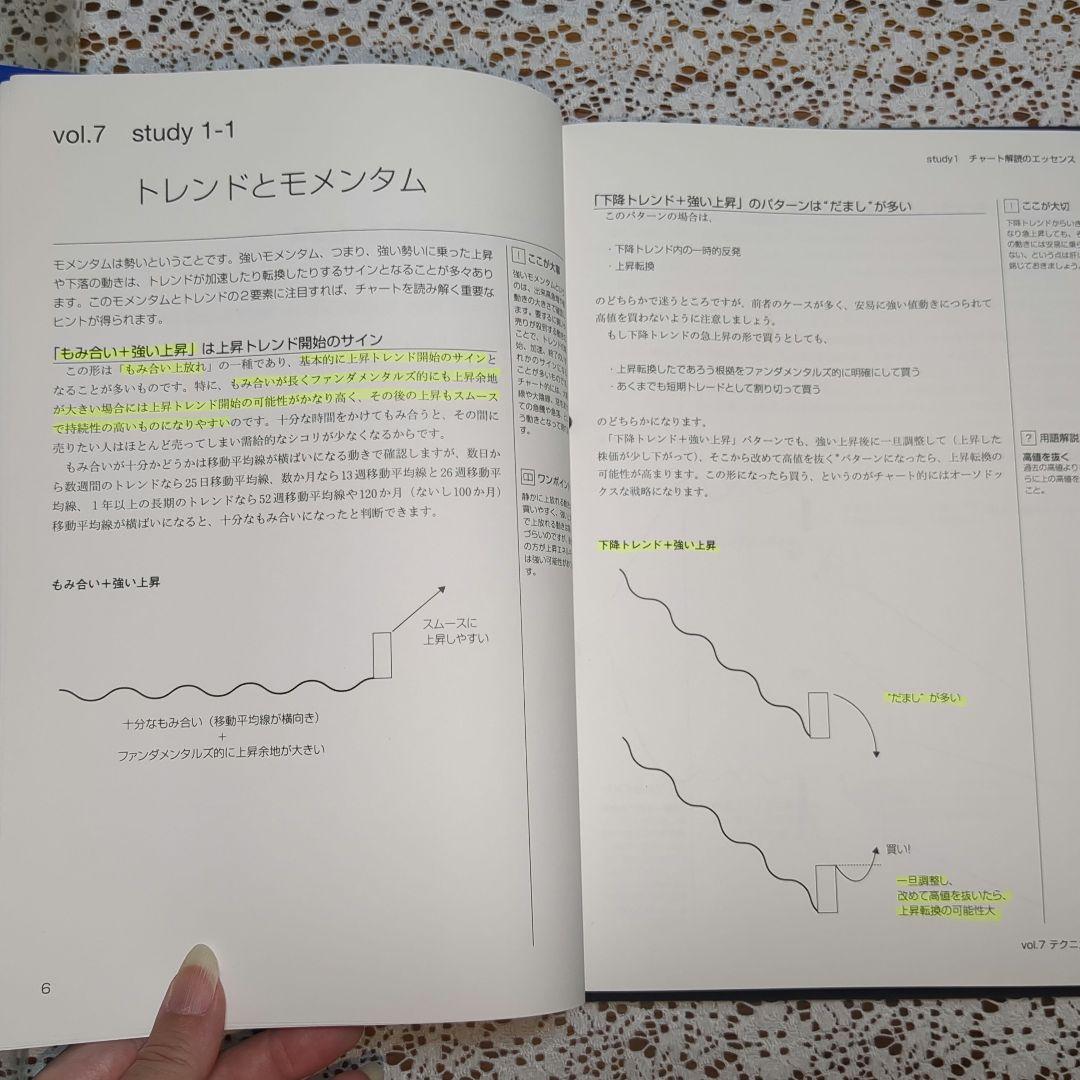 vol.7 study 1-1
トレンドとモメンタム
モメンタムは勢いということです。強いモメンタム、つまり、強い勢いに乗った上昇
や下落の動きは、トレンドが加速したり転換したりするサインとなることが多々あり
ます。このモメンタムとトレンドの2要素に注目すれば、チャートを読み解く重要な
ヒントが得られます。
「もみ合い＋強い上昇」は上昇トレンド開始のサイン
この形は「もみ合い上放れ」の一種であり、基本的に上昇トレンド開始のサインと
なることが多いものです。特に、もみ合いが長くファンダメンタルズ的にも上昇余地
が大きい場合には上昇トレンド開始の可能性がかなり高く、その後の上昇もスムース
で持続性の高いものになりやすいのです。十分な時間をかけてもみ合うと、その間に
売りたい人はほとんど売ってしまい需給的なシコリが少なくなるからです。
もみ合いが十分かどうかは移動平均線が横ばいになる動きで確認しますが、数日か
ら数週間のトレンドなら25日移動平均線、数か月なら13週移動平均線と26週移動平
均線、1年以上の長期のトレンドなら52週移動平均線や120か月（ないし100か月）
移動平均線が横ばいになると、十分なもみ合いになったと判断できます。
もみ合い＋強い上昇
スムースに
上昇しやすい
十分なもみ合い（移動平均線が横向き）
＋
ファンダメンタルズ的に上昇余地が大きい
6
! ここが大事
強いモメンタムと
のは、出来高
動きの大きさで
ます。要するに
売りが殺到する
ことで、トレンドの
始、加速、終了の
れかのサインに
ことが多いもので
チャート的には、大
線や大陰線、
ての急騰や急落、と
う動きとなって
す。
ワンポイン
静かに上放れる動
買いやすく、強い
で上放れる動きは
づらいのですが、
の方が上昇エネル
は強い可能性が
す。
study1 チャート解読のエッセンス
「下降トレンド＋強い上昇」のパターンは“だまし”が多い
このパターンの場合は、
・下降トレンド内の一時的反発
・上昇転換
のどちらかで迷うところですが、前者のケースが多く、安易に強い値動きにつられて
高値を買わないように注意しましょう。
もし下降トレンドの急上昇の形で買うとしても、
・上昇転換したであろう根拠をファンダメンタルズ的に明確にして買う
・あくまでも短期トレードとして割り切って買う
のどちらかになります。
「下降トレンド＋強い上昇」パターンでも、強い上昇後に一旦調整して（上昇した
株価が少し下がって）、そこから改めて高値を抜く*パターンになったら、上昇転換の
可能性が高まります。この形になったら買う、というのがチャート的にはオーソドッ
クスな戦略になります。
下降トレンド＋強い上昇
“だまし”が多い
買い!
一旦調整し、
改めて高値を抜いたら、
上昇転換の可能性大
! ここが大切
下降トレンドからいき
なり急上昇しても、そ
の動きには安易に乗ら
ない、という点は肝に
銘じておきましょう。
? 用語解説
高値を抜く
過去の高値より
らに上の高値を
こと。
vol.7 テクニ